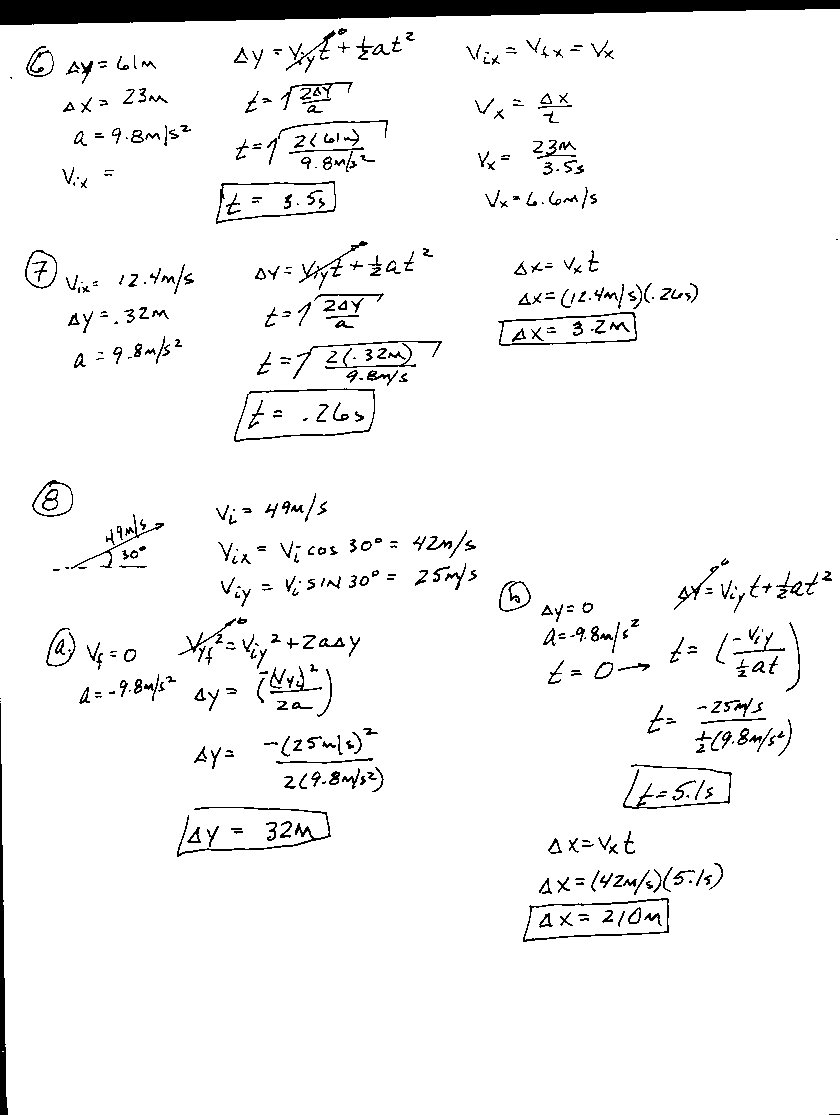 6
Δy = 61m
Δx = 23m
a = 9.8m/s²
Vix =
Δy = Viyt + ½at²
t = √(2Δy/a)
t = √(2(61m)/9.8m/s²)
t = 3.5s
Vix = Vfx = Vx
Vx = Δx/t
Vx = 23m/3.5s
Vx = 6.6m/s
7
Vix = 12.4m/s
Δy = .32m
a = 9.8m/s²
Δy = Viyt + ½at²
t = √(2Δy/a)
t = √(2(.32m)/9.8m/s)
t = .26s
Δx = Vxt
Δx = (12.4m/s)(.26s)
Δx = 3.2m
8
49m/s
30°
Vi = 49m/s
Vix = Vi cos 30° = 42m/s
Viy = Vi SIN 30° = 25m/s
a.
Vf = 0
a = -9.8m/s²
Vyf² = Viy² + 2aΔy
Δy = (-(Vyi)²/2a)
Δy = -(25m/s)²/2(9.8m/s²)
Δy = 32m
b
Δy = 0
a = -9.8m/s²
t = 0 →
Δy = Viyt + ½at²
t = (-Viy/½at)
t = -25m/s/½(9.8m/s²)
t = 5.1s
Δx = Vxt
Δx = (42m/s)(5.1s)
Δx = 210m